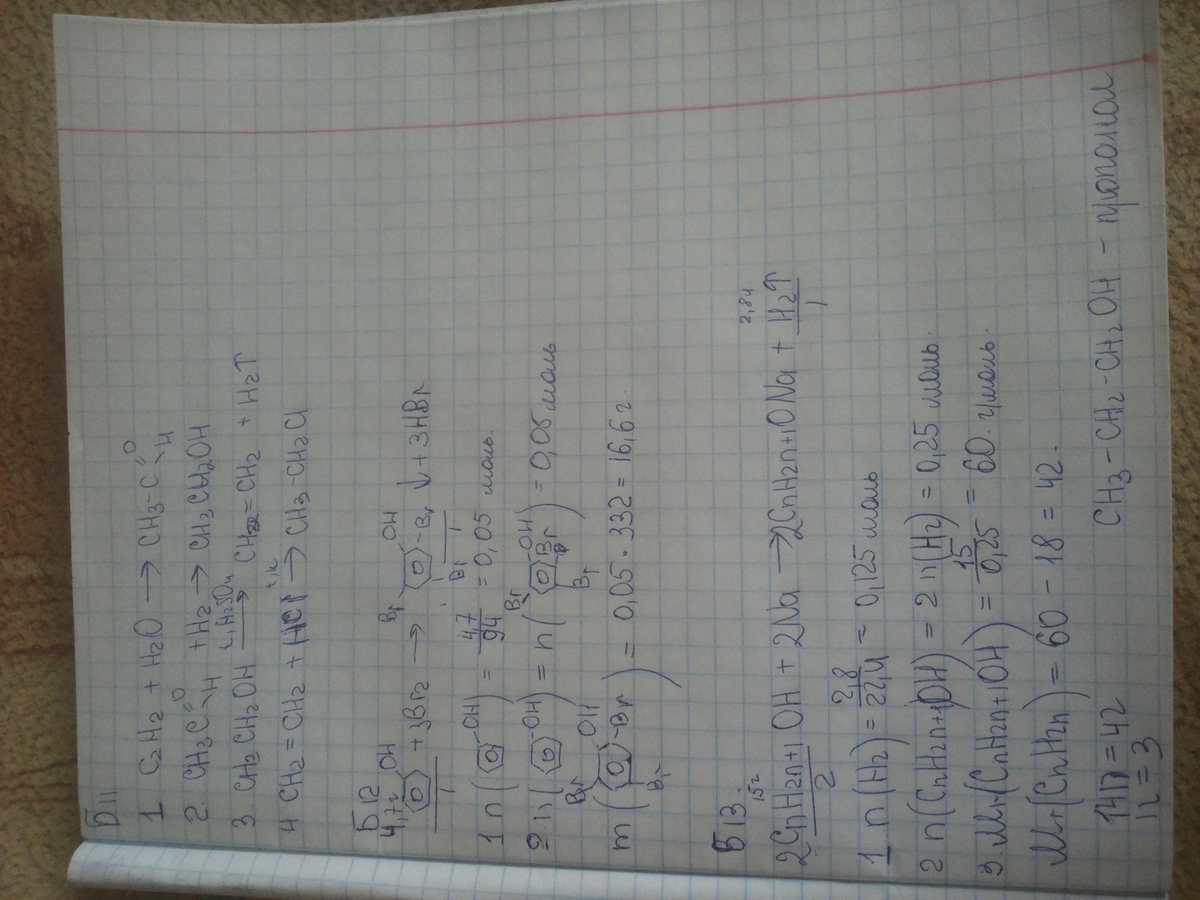 Б11
1 C2H2 + H2O → CH3-C=O H
2. CH3C=O H + H2 → CH3CH2OH
3 CH3CH2OH t, H2SO4 → CH2=CH2 + H2↑
4 CH2=CH2 + HCl t, к → CH3-CH2Cl
Б12
4,7г OH + 3Br2 → Br OH -Br Br ↓ + 3HBr
1 1
1 n( OH) = 4,7/94 = 0,05 моль.
2. n( OH) = n( Br OH Br Br ) = 0,05 моль
m( Br OH -Br Br ) = 0,05 · 332 = 16,6 г.
Б13.
15г 2,8л
2CnH2n+1OH + 2Na → 2CnH2n+1ONa + H2↑
2 1
1 n(H2) = 2,8/22,4 = 0,125 моль
2 n(CnH2n+1OH) = 2 n(H2) = 0,25 моль.
3. Mr(CnH2n+1OH) = 15/0,25 = 60 г/моль.
Mr(CnH2n) = 60 - 18 = 42.
14n = 42
n = 3
CH3-CH2-CH2OH - пропонол